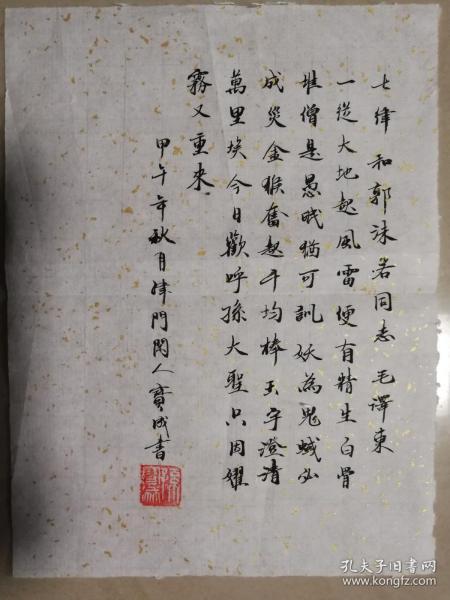 七律 和郭沫若同志 毛澤東
一從大地起風雷便有精生白骨
堆僧是愚氓猶可訓妖為鬼蜮必
成災金猴奮起千均棒玉宇澄清
萬里埃今日歡呼孫大聖只因
霧又重來
甲午年秋月津門閑人寶成書
孔夫子旧书网
www.kongfz.com